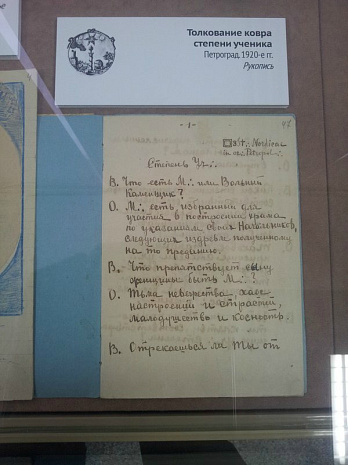 Толкование ковра
степени ученика
Петроград. 1920-е гг.
Рукопись
- 1 -
Astr: Nordica
Степень Уч∴
В. Что есть М∴ или Вольный
Каменщик?
О. М∴ есть избранный для
участия в построении храма
по указаниям своих Начальников,
следующих издревле полученному
на то преданию.
В. Что препятствует
быть М∴?
О. Тьма невежества, хаос
настроений и страстей,
малодушество и косность.
В. Отрекаешься ли Ты от